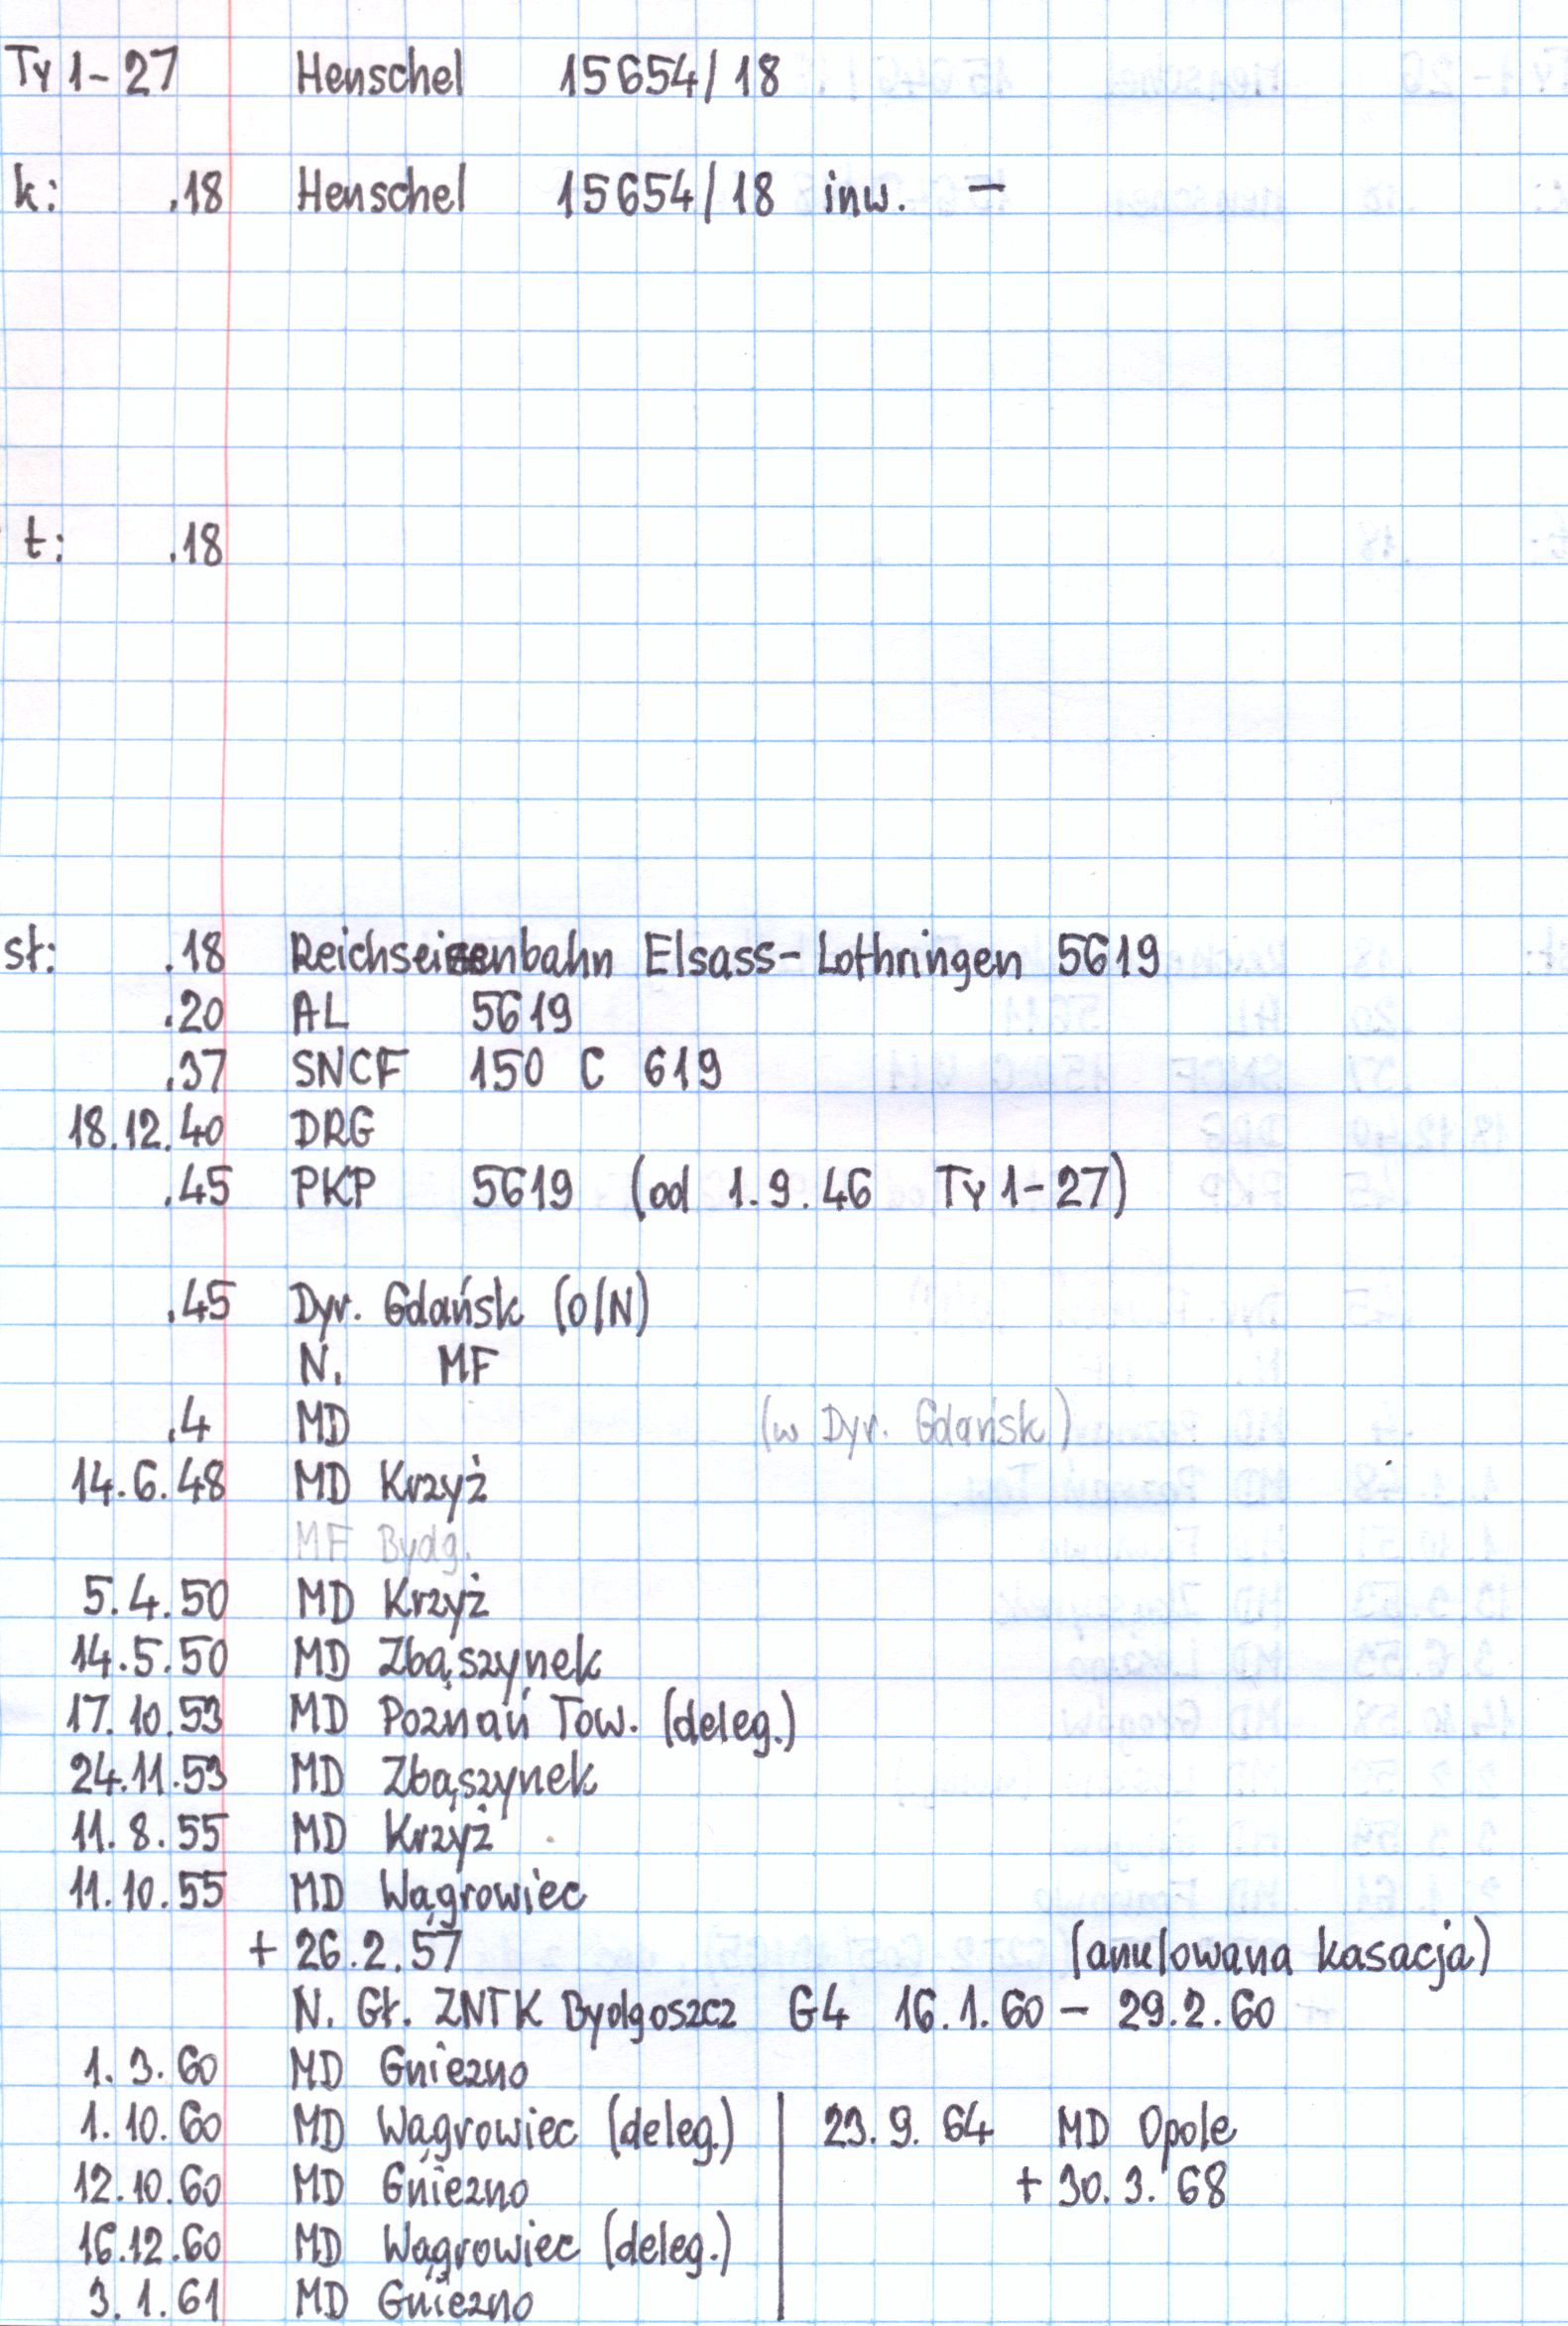 Ty 1-27 Henschel 15654/18
k: .18 Henschel 15654/18 inw. —
t: .18
st: .18 Reichseisenbahn Elsass-Lothringen 5619
.20 AL 5619
.37 SNCF 150 C 619
18.12.40 DRG
.45 PKP 5619 (od 1.9.46 Ty 1-27)
.45 Dyr. Gdańsk (O/N)
N. MF
.4 MD (w Dyr. Gdańsk)
14.6.48 MD Krzyż
MF Bydg.
5.4.50 MD Krzyż
14.5.50 MD Zbąszynek
17.10.53 MD Poznań Tow. (deleg.)
24.11.53 MD Zbąszynek
11.8.55 MD Krzyż
11.10.55 MD Wągrowiec
+ 26.2.57 (anulowana kasacja)
N. Gł. ZNTK Bydgoszcz G4 16.1.60 – 29.2.60
1.3.60 MD Gniezno
1.10.60 MD Wągrowiec (deleg.)
12.10.60 MD Gniezno
16.12.60 MD Wągrowiec (deleg.)
3.1.61 MD Gniezno
23.9.64 MD Opole
+ 30.3.68